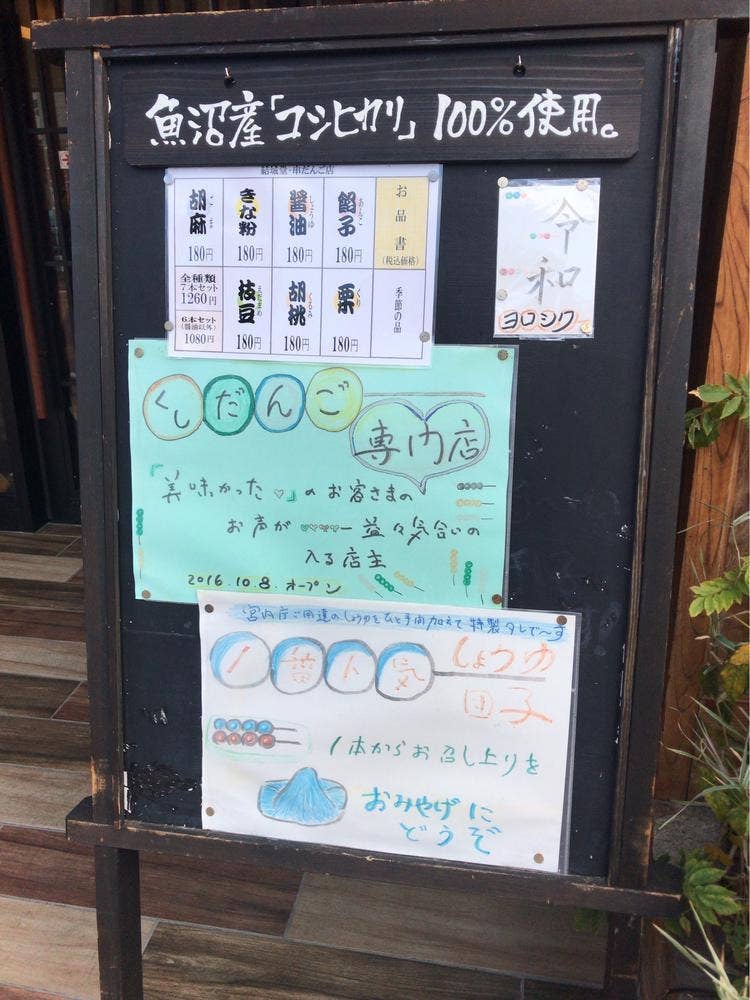 魚沼産「コシヒカリ」100%使用。
結城堂・串だんご店
お品書
(税込価格)
餡子
あんこ
180円
醤油
しょうゆ
180円
きな粉
180円
胡麻
ごま
180円
季節の品
栗
くり
180円
胡桃
くるみ
180円
枝豆
えだまめ
180円
全種類
7本セット
1260円
6本セット
(醤油以外)
1080円
令和
ヨロシク
くしだんご
専内店
『美味かった♡』のお客さまの
お声が
益々気合いの
入る店主
2016.10.8.オープン
宮内庁ご用達のしょうゆをひと手間加えて特製タレで〜す
1番人気
しょうゆ
団子
1本からお召し上りを
おみやげに
どうぞ